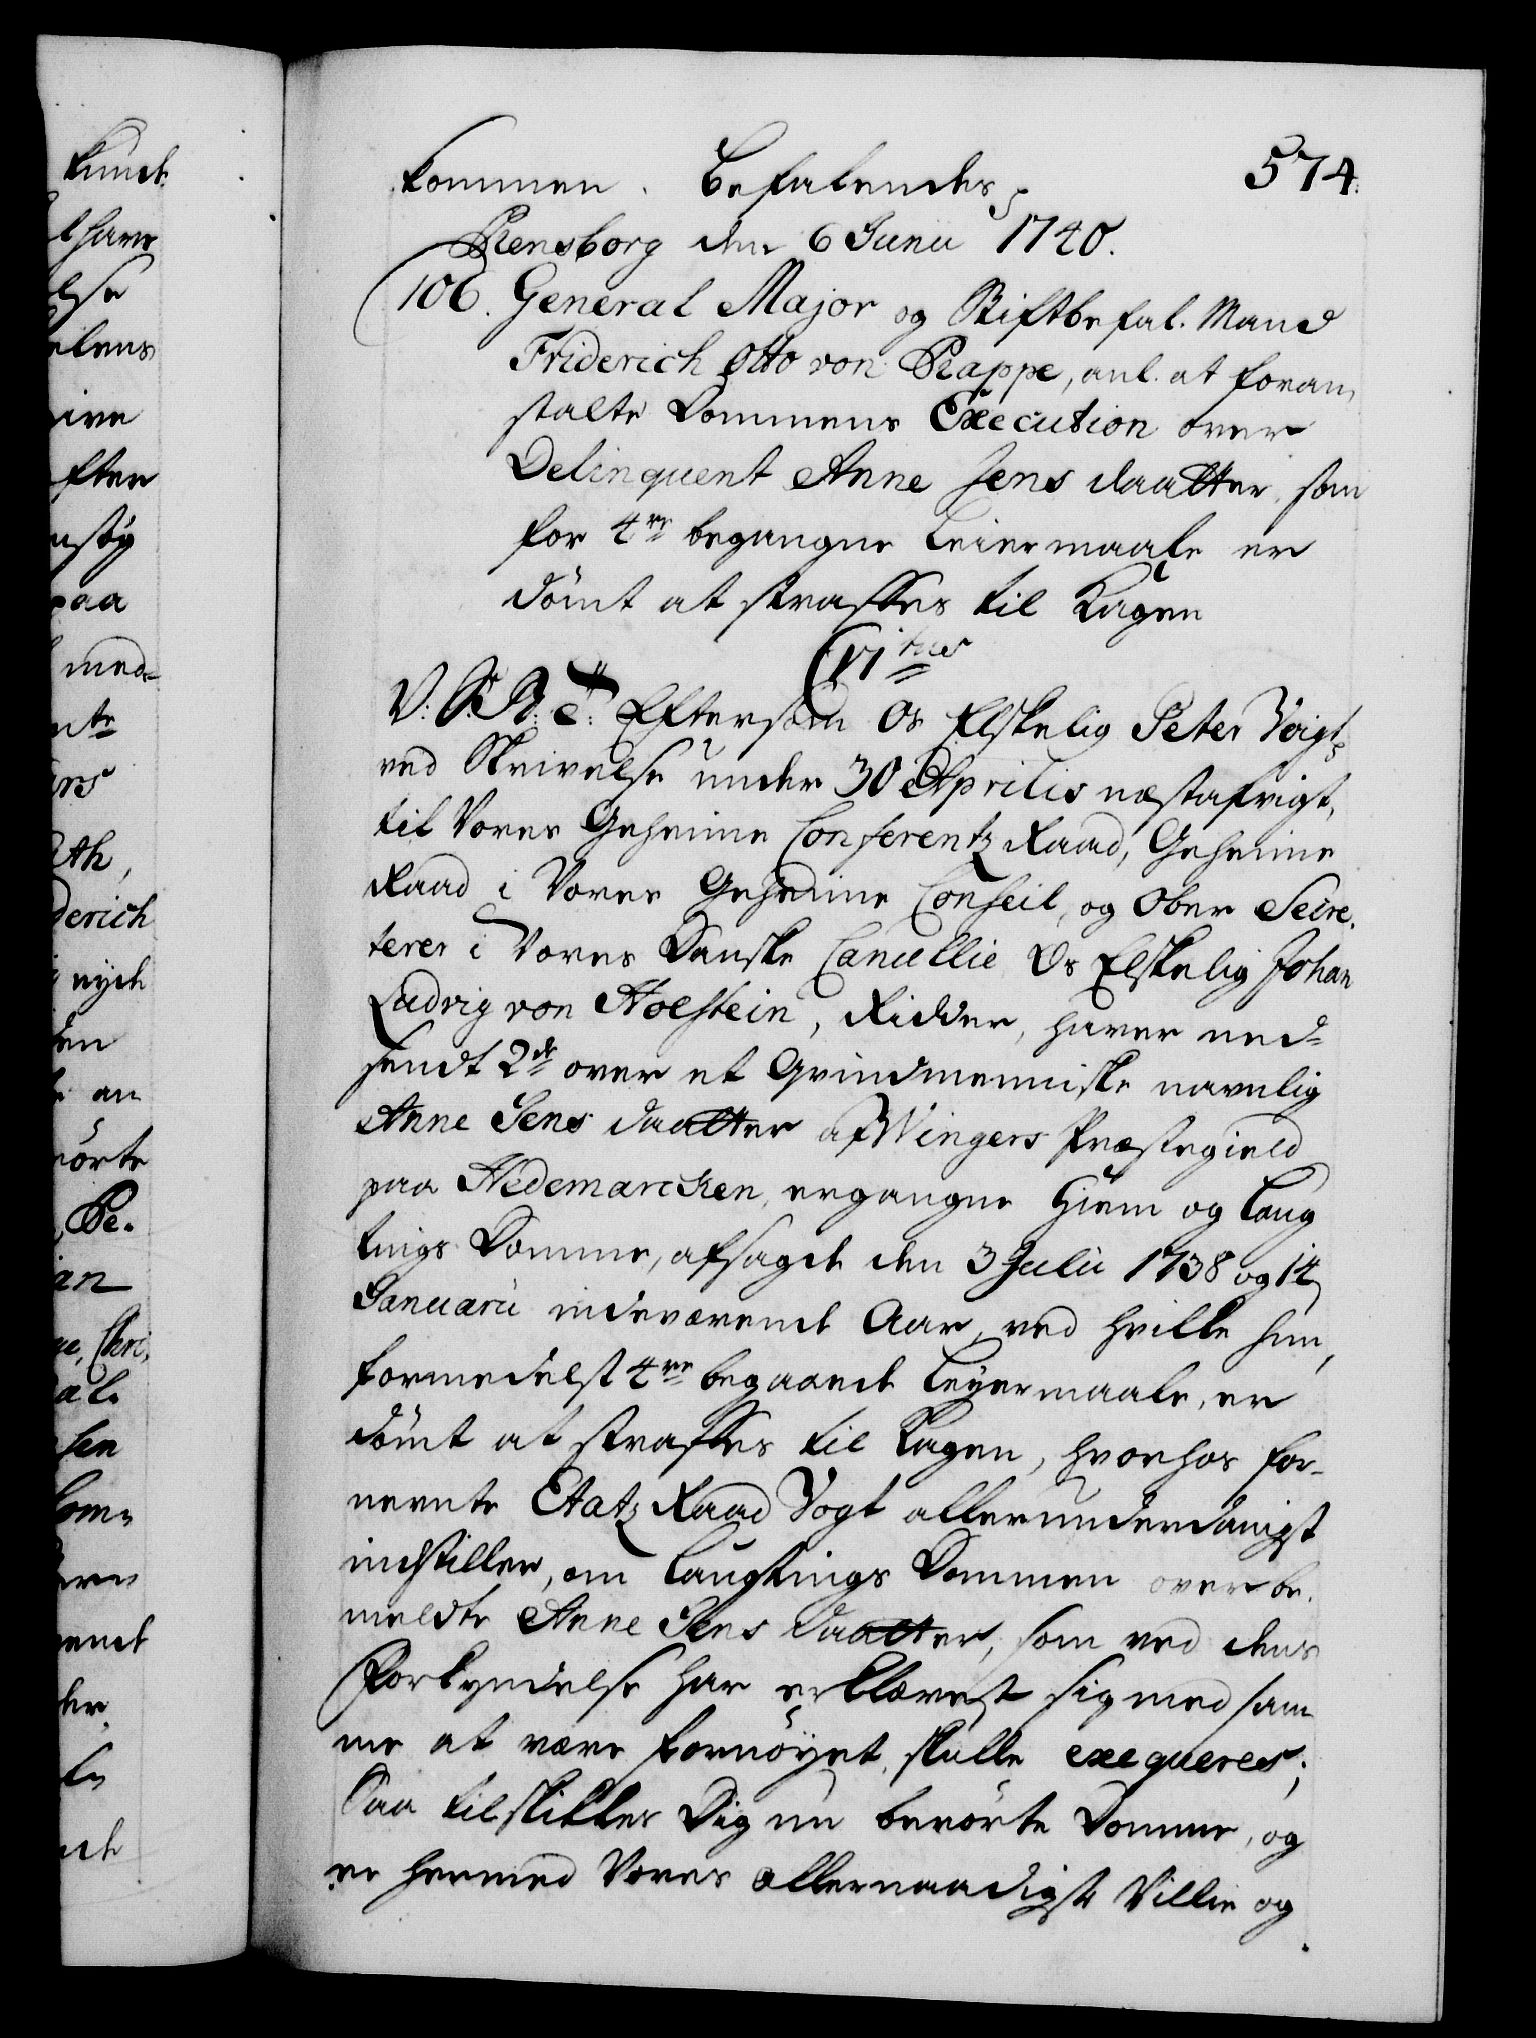 574.
kommen. Befalendes
Rensborg den 6 Junii 1740.
106. General Major og Stiftbefal. Mand
Friderich Otto von Rappe, anl. at foran,
stalte Dommens Execution over
Delinquent Anne Jens daatter, som
for 4re begangne Leiermaale er
dömt at straffes til Kagen
V: S: B: T: Eftersom Os Elskelig Peter Voigt
ved Skrivelse under 30 Aprilis næstafvigt,
til Vores Geheime Conferentz Raad, Geheime
Raad i Vores Geheime Conseil, og Ober Secre,
terer i Vores Danske Cancellie Os Elskelig Johan
Ludvig von Holstein, Ridder, haver ned-
sendt 2de over et Qvindmenniske navnlig
Anne Jens daatter af Wingers Præstegield
paa Hedemarcken, ergangne Hiem og Laug
tings Domme, afsagde den 3 Julii 1738 og 14
Januarii indeværende Aar, ved hvilke hun,
formedelst 4re begaaede Leyermaale, er
dömt at straffes til Kagen, hvorhos for-
nevnte Etatz Raad Vogt allerunderdanigst
indstiller, om Laugtings Dommen over be,
meldte Anne Jens daatter, som ved dens
Forkyndelse har erklæret sig med sam
me at være fornöyet, skulle exequeres;
Saa tilskikkes Dig nu berörte Domme, og
er hermed Vores allernaadigste Villie og
kunde
lhave
else
elens
give
efter
paa
med
ers
Ath,
derich
nyde
den
an
hörte
Pe.
an
Chri,
al.
sen
Com,
ende
der